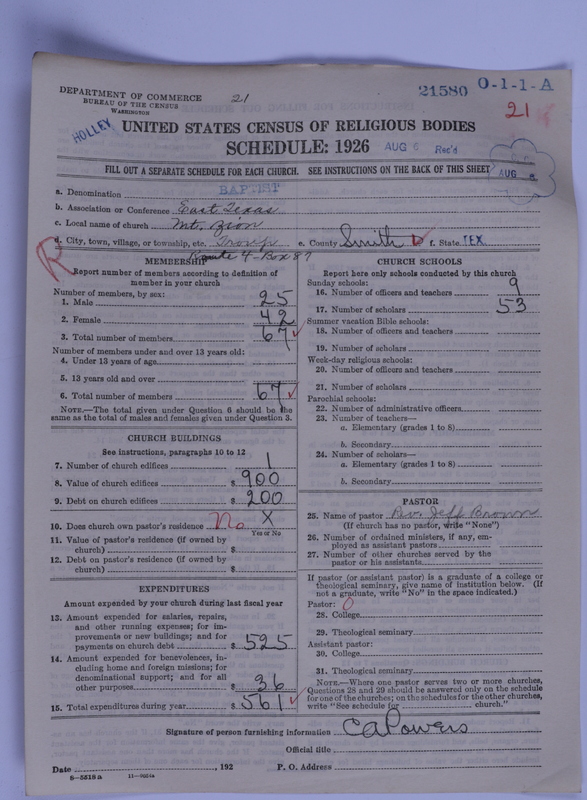 DEPARTMENT OF COMMERCE 21 21580 O-1-1-A
BUREAU OF THE CENSUS
WASHINGTON 21
HOLLEY
UNITED STATES CENSUS OF RELIGIOUS BODIES
SCHEDULE: 1926 AUG 6 Rec'd
FILL OUT A SEPARATE SCHEDULE FOR EACH CHURCH. SEE INSTRUCTIONS ON THE BACK OF THIS SHEET AUG
a. Denomination BAPTIST
b. Association or Conference East Texas
c. Local name of church Mt. Zion
d. City, town, village, or township, etc. e. County Smith f. State TEX.
R
Route 4-Box 87
MEMBERSHIP
Report number of members according to definition of
member in your church
Number of members, by sex:
1. Male 25
2. Female 42
3. Total number of members 67
Number of members under and over 13 years old:
4. Under 13 years of age
5. 13 years old and over
6. Total number of members 67
NOTE.—The total given under Question 6 should be the
same as the total of males and females given under Question 3.
CHURCH BUILDINGS
See instructions, paragraphs 10 to 12
7. Number of church edifices 1
8. Value of church edifices $ 900
9. Debt on church edifices $ 200
10. Does church own pastor's residence No X
Yes or No
11. Value of pastor's residence (if owned by
church) $
12. Debt on pastor's residence (if owned by
church) $
EXPENDITURES
Amount expended by your church during last fiscal year
13. Amount expended for salaries, repairs,
and other running expenses; for im-
provements or new buildings; and for
payments on church debt $ 525
14. Amount expended for benevolences, in-
cluding home and foreign missions; for
denominational support; and for all
other purposes $ 36
15. Total expenditures during year $ 561
CHURCH SCHOOLS
Report here only schools conducted by this church
Sunday schools:
16. Number of officers and teachers 9
17. Number of scholars 53
Summer vacation Bible schools:
18. Number of officers and teachers
19. Number of scholars
Week-day religious schools:
20. Number of officers and teachers
21. Number of scholars
Parochial schools:
22. Number of administrative officers
23. Number of teachers—
a. Elementary (grades 1 to 8)
b. Secondary
24. Number of scholars—
a. Elementary (grades 1 to 8)
b. Secondary
PASTOR
25. Name of pastor Rev. Jeff Brown
(If church has no pastor, write "None")
26. Number of ordained ministers, if any, em-
ployed as assistant pastors
27. Number of other churches served by the
pastor or his assistants
If pastor (or assistant pastor) is a graduate of a college or
theological seminary, give name of institution below. (If
not a graduate, write "No" in the space indicated.)
Pastor: 0
28. College
29. Theological seminary
Assistant pastor:
30. College
31. Theological seminary
NOTE.—Where one pastor serves two or more churches,
Questions 28 and 29 should be answered only on the schedule
for one of the churches; on the schedules for the other churches,
write "See schedule for church."
Signature of person furnishing information C A Powers
Official title
Date , 192 P. O. Address
8-5518a